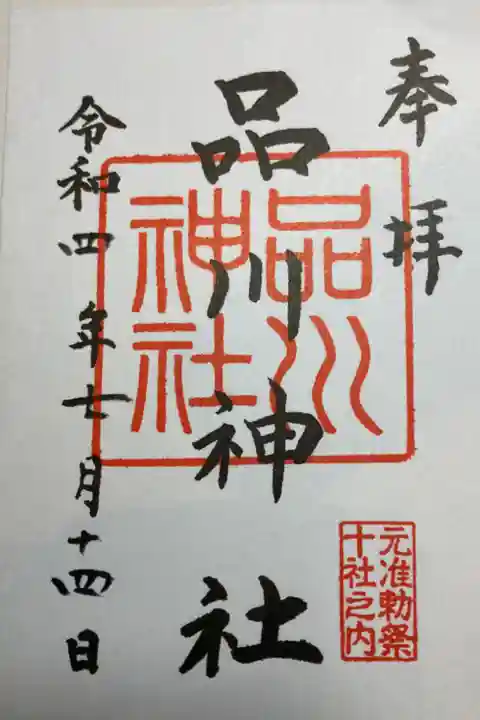 奉拝
品川神社
品川
神社
令和四年七月十四日
元准勅祭
十社之内